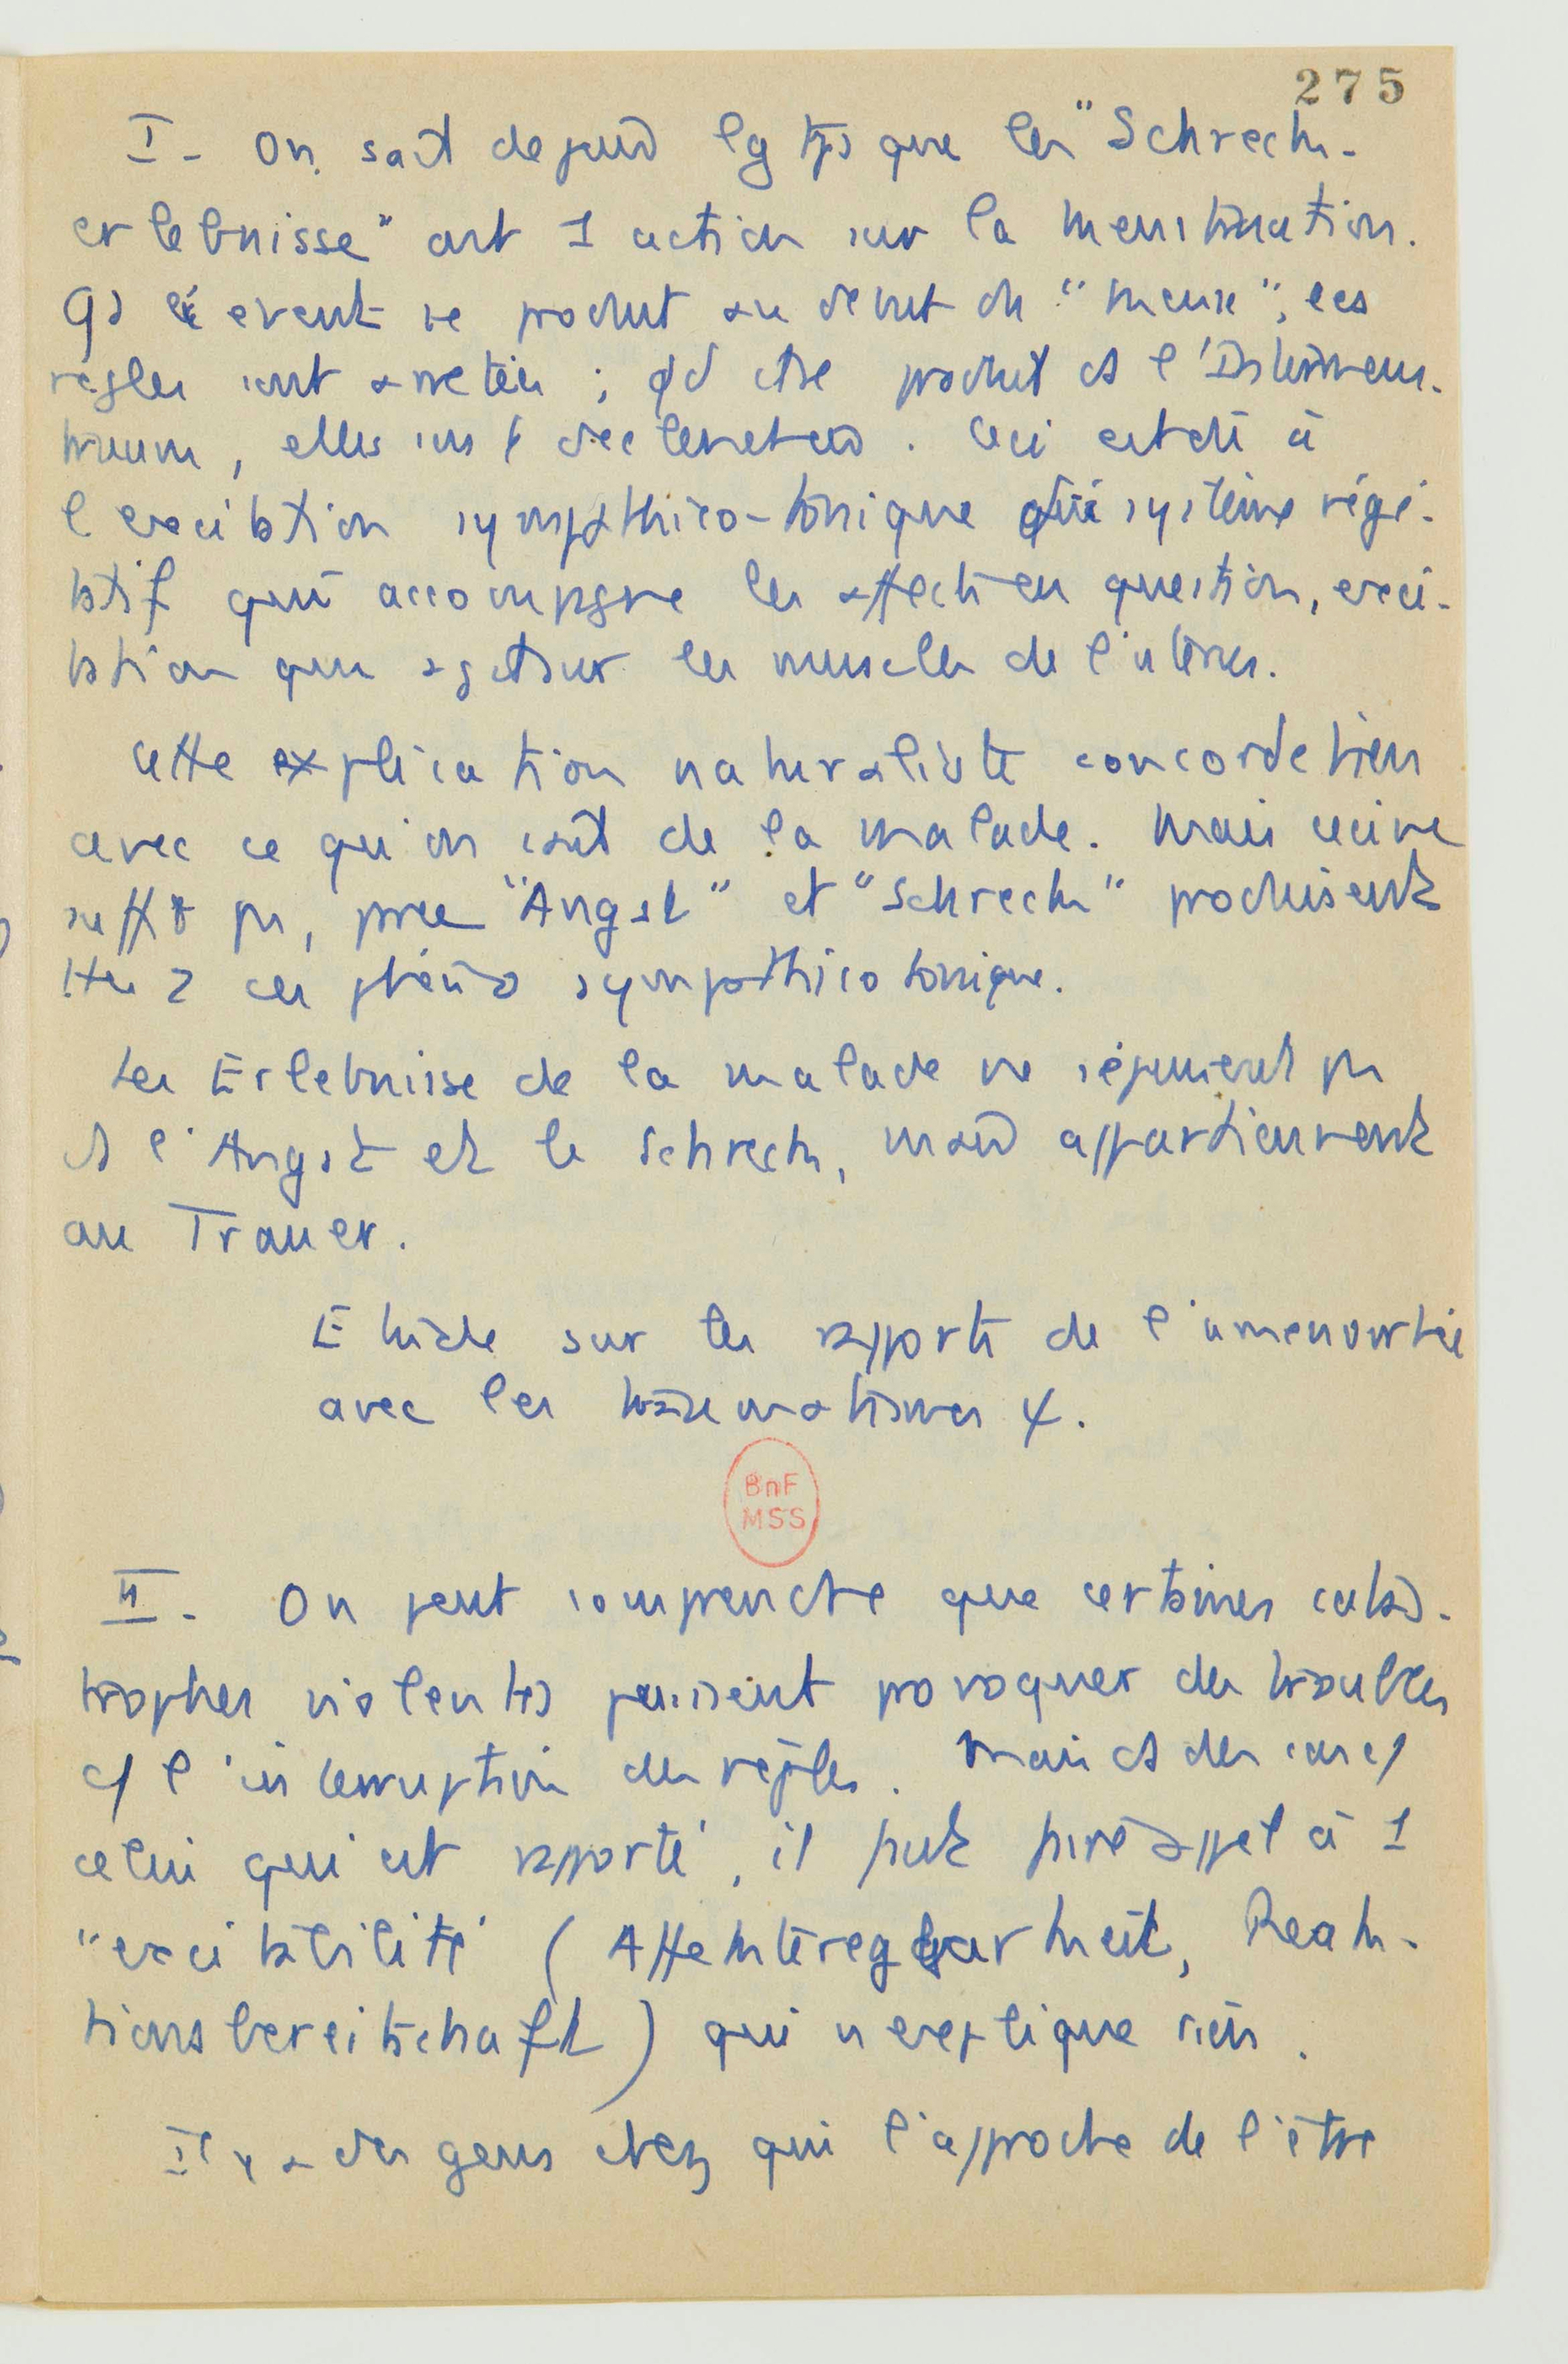 275
I - On sait depuis lg tps que les "Schreck-
erlebnisse" ont 1 action sur la menstruation.
Qd l'évent se produit au début du "mense", les
règles sont arrêtées ; qd il se produit ds l'Intermens-
truum, elles sont déclenchées. Ceci est dû à
l'excitation sympathico-tonique du système végé-
tatif qui accompagne les affects en question, exci-
tation qui agit sur les muscles de l'utérus.
Cette explication naturaliste concorde bien
avec ce qu'on sait de la malade. Mais ceci ne
suffit pas, pcq "Angst" et "Schreck" produisent
ts les 2 ces phéno sympathicotonique.
Les Erlebnisse de la malade ne s'épuisent pas
ds l'Angst et le Schreck, mais appartiennent
au Trauer.
Etude sur les rapports de l'aménorrhée
avec les traumatismes ψ.
BnF
MSS
II - On peut comprendre que certaines catas-
trophes violentes puissent provoquer des troubles
c/ l'interruption des règles. Mais ds des cas c/
celui qui est rapporté, il faut faire appel à 1
"excitabilité" (Affekterregbarkeit, Reak-
tionsbereitschaft) qui n'explique rien.
Il y a des gens chez qui l'approche de l'être